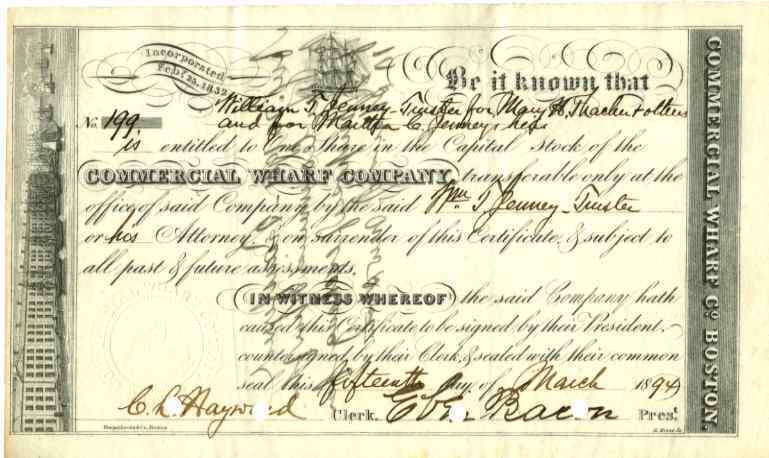 Incorporated
Feb. 25, 1832
Be it known that
William T. Jenney Trustee for Mary H. Thacher & others
No. 199.
and for Martha C. Jenney's heirs
is entitled to One Share in the Capital Stock of the
COMMERCIAL WHARF COMPANY, transferable only at the
office of said Company by the said Wm. T. Jenney Trustee
or his Attorney, & on surrender of this Certificate, & subject to
all past & future assessments.
IN WITNESS WHEREOF the said Company hath
caused this Certificate to be signed by their President,
countersigned by their Clerk, & sealed with their common
seal this fifteenth day of March 1894
C. L. Hayward Clerk. Eben Bacon Prest.
COMMERCIAL WHARF Co. BOSTON.